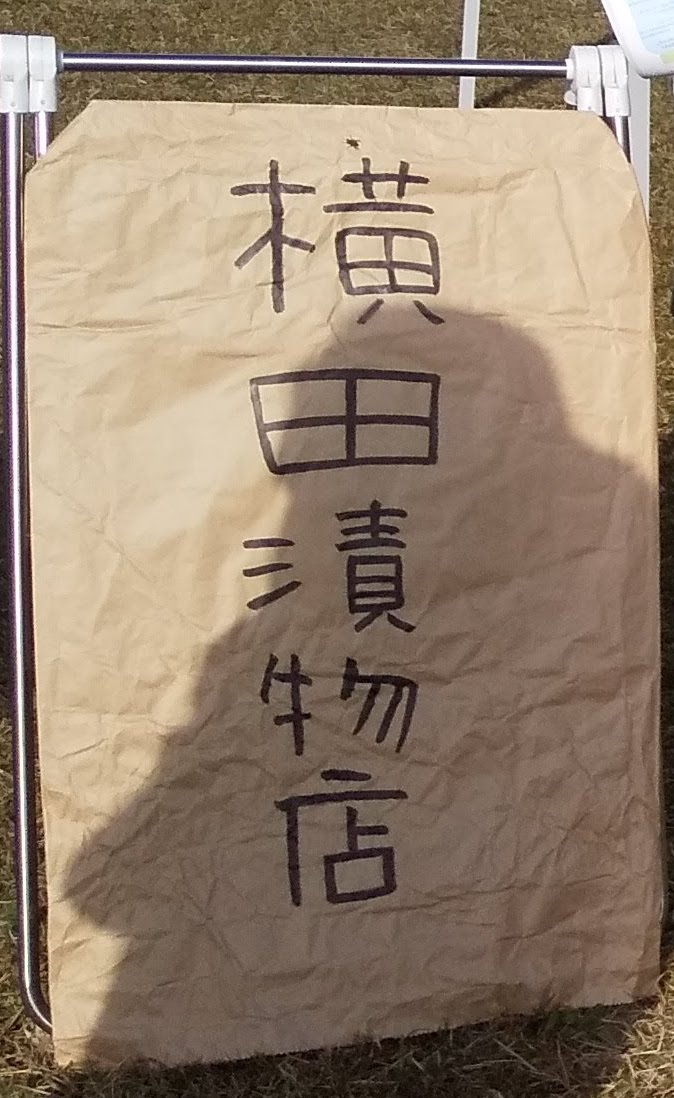 横田漬物店